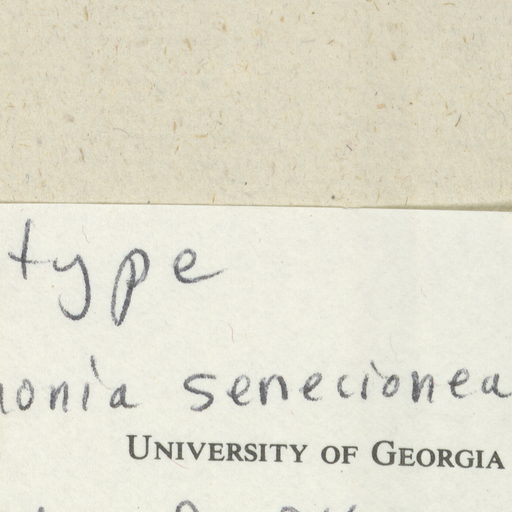 type
senecionea
UNIVERSITY OF GEORGIA